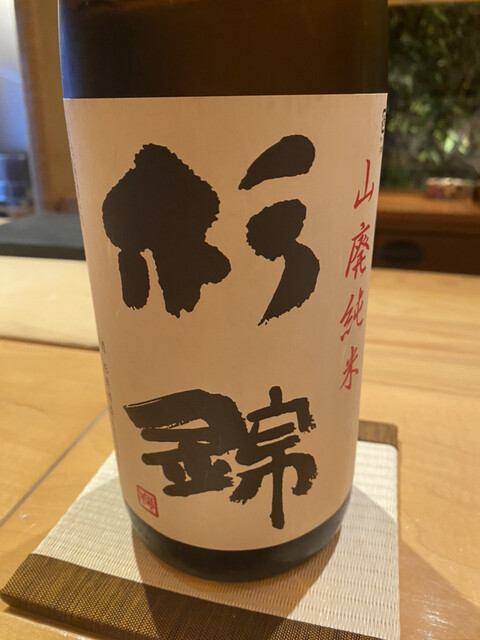 杉錦
山廃純米